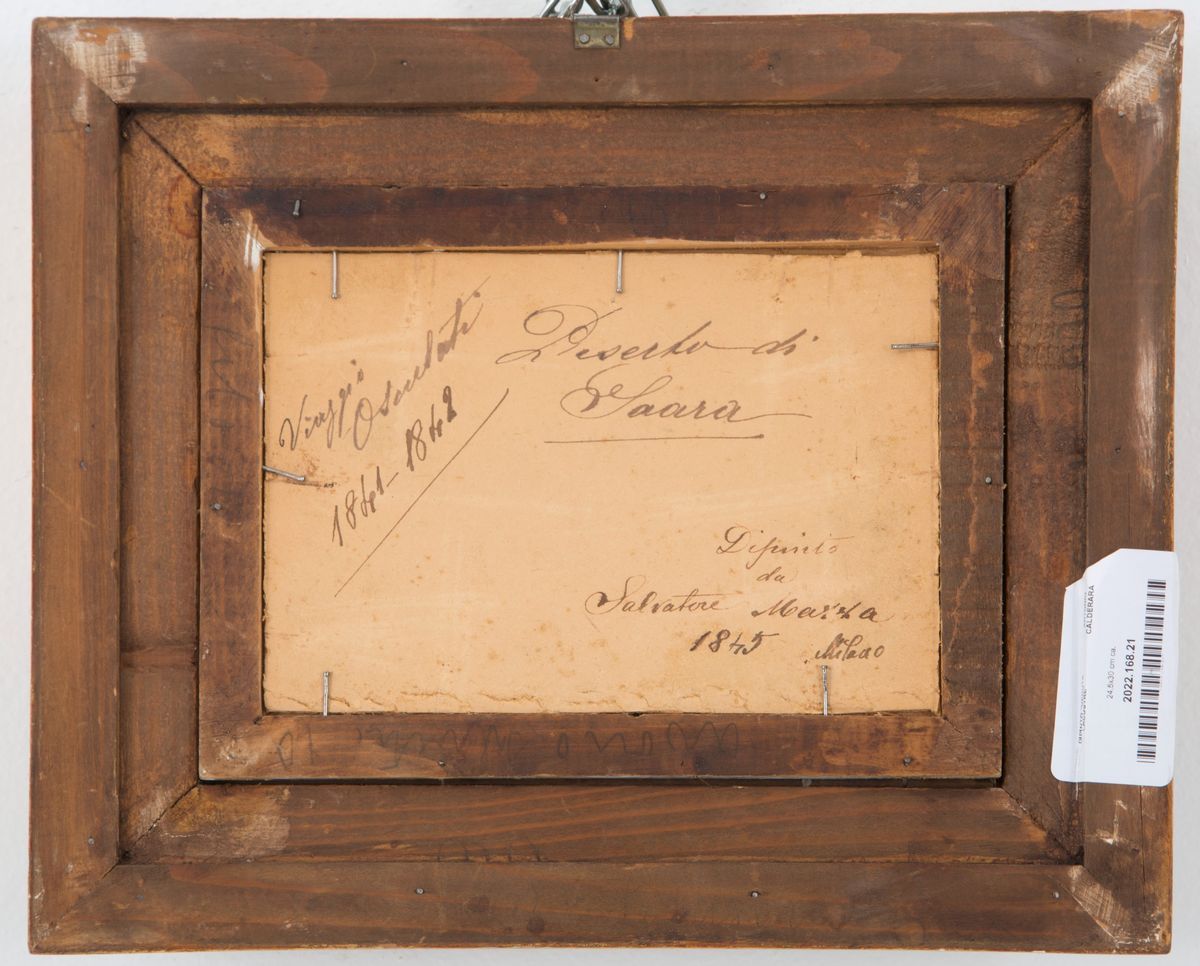 Viaggio
Osculati
1841-1842
Deserto di
Saara
Dipinto
da
Salvatore Mazza
1845 Milano
CALDERARA
24.5x30 cm ca.
2022.168.21